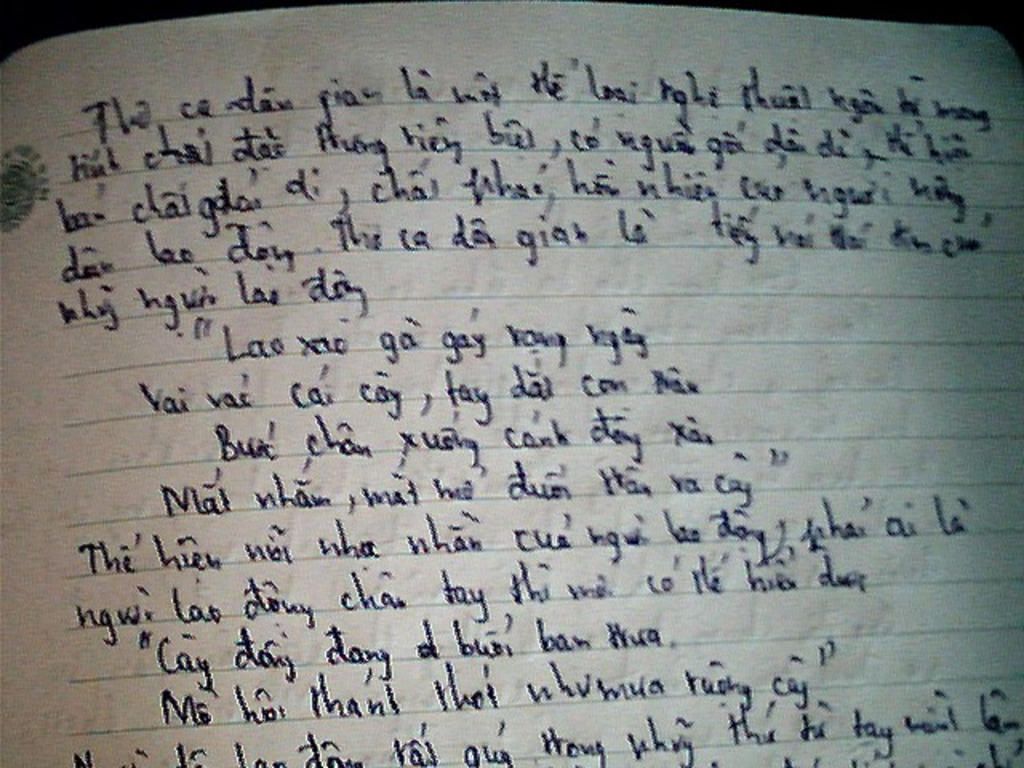 Thơ ca dân gian là một thể loại nghệ thuật ngôn từ mang
tính chất đặc trưng riêng biệt, có nguồn gốc dân dã, thể hiện
bản chất giản dị, chất phác, hồn nhiên của người nông
dân lao động. Thơ ca dân gian là tiếng nói của
những người lao động
"Lao xao gà gáy rạng ngày
Vai vác cái cày, tay dắt con trâu
Bước chân xuống cánh đồng sâu
Mắt nhắm, mắt mở đuổi trâu ra cày"
Thể hiện nỗi nhọc nhằn của người lao động, phải ai là
người lao động chân tay thì mới có thể hiểu được
"Cày đồng đang ở buổi ban trưa.
Mồ hôi thánh thót như mưa ruộng cày"
lao động rất quý trọng những thứ từ tay mình làm